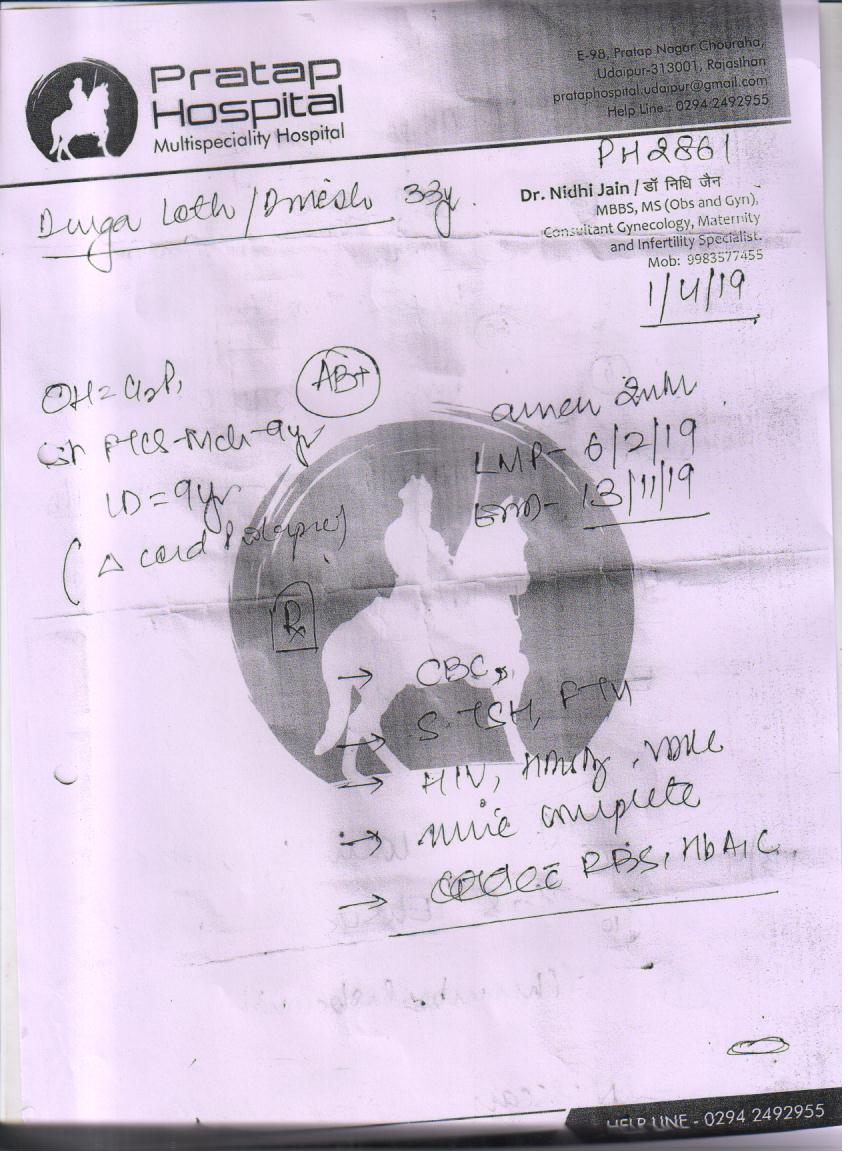 Pratap
Hospital
Multispeciality Hospital
E-98, Pratap Nagar Chouraha,
Udaipur-313001, Rajasthan
prataphospital.udaipur@gmail.com
Help Line : 0294 2492955
PH2861
Dr. Nidhi Jain / डॉ निधि जैन
MBBS, MS (Obs and Gyn),
Consultant Gynecology, Maternity
and Infertility Specialist.
Mob: 9983577455
Durga / Dinesh 33y.
1/4/19
AB+
OH = G2P1
LMP- 6/2/19
LD = 9yr
13/11/19
(Δ cord Prolapse)
Rx
→ CBC,
→ S. TSH,
→ HIV, HBsAg, VDRL
→ complete
→ RBS, HbA1C.
HELP LINE - 0294 2492955